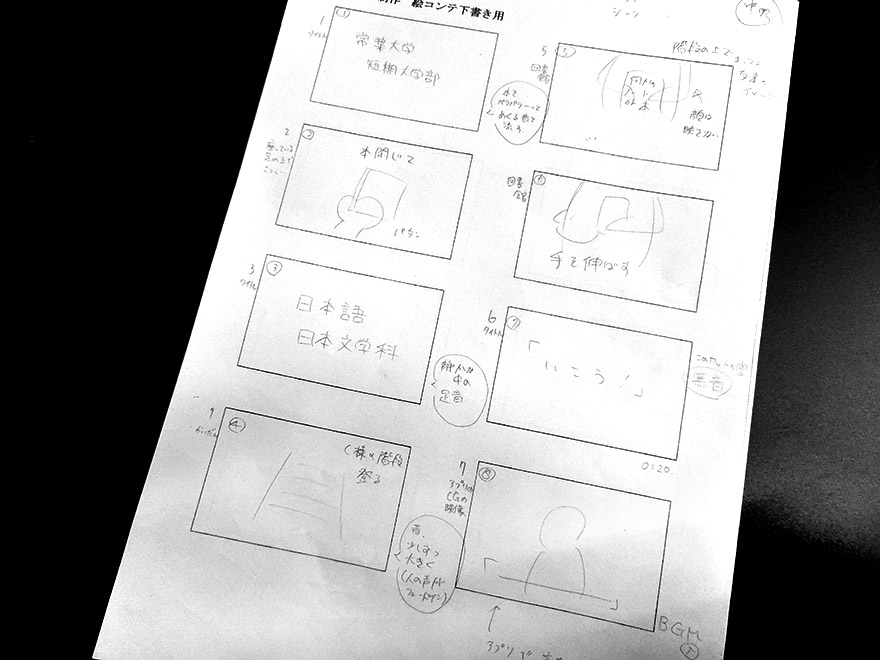 絵コンテ下書き用
シーン
1
タイトル
①
常葉大学
短期大学部
2
②
本閉じて
パタン
3
タイトル
③
日本語
日本文学科
静かな
中の
足音
④
C棟の階段
登る
音、
少しずつ
大きく
(人の声が
フェードイン)
5
図書館
⑤
階段の上で
入ト
本
顔は
映さない
本を
パラパラーって
めくる音を
流す
図書館
⑥
手を伸ばす
6
タイトル
⑦
「いこう!」
無音
0:20
7
アプリの
CGの
映像
⑧
「 」
BGM
アプリで